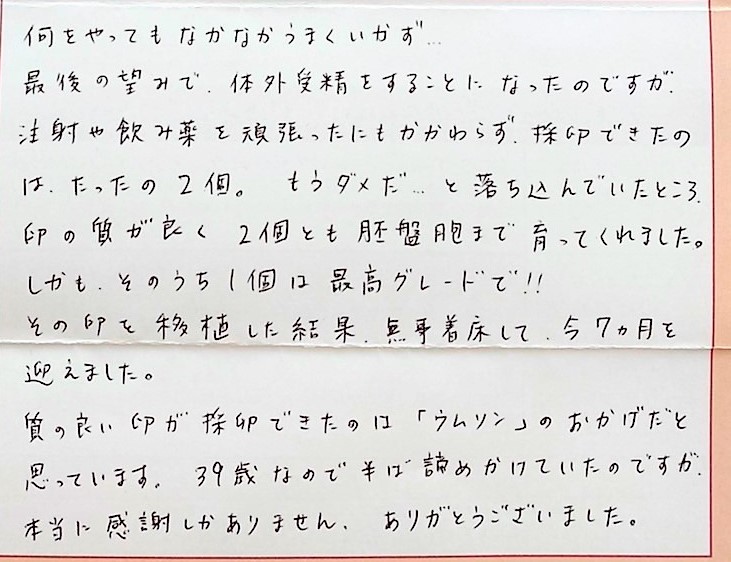 何をやってもなかなかうまくいかず…
最後の望みで、体外受精をすることになったのですが、
注射や飲み薬を頑張ったにもかかわらず、採卵できたの
は、たったの2個。 もうダメだ…と落ち込んでいたところ、
卵の質が良く 2個とも胚盤胞まで育ってくれました。
しかも、そのうち1個は最高グレードで!!
その卵を移植した結果、無事着床して、今7ヵ月を
迎えました。
質の良い卵が採卵できたのは「ウムリン」のおかげだと
思っています。 39歳なので半ば諦めかけていたのですが、
本当に感謝しかありません、 ありがとうございました。